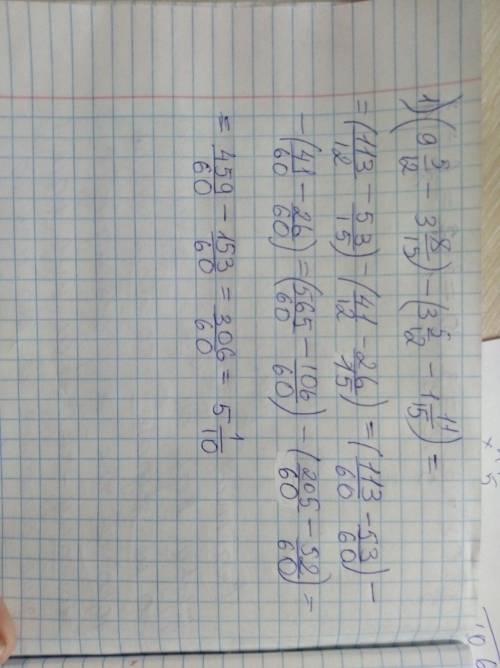 1) (9 5/12 - 3 8/15) - (3 5/12 - 1 11/15) =
= (113/12 - 53/15) - (41/12 - 26/15) = (113/60 - 53/60) -
- (41/60 - 26/60) = (565/60 - 106/60) - (205/60 - 52/60) =
= 459/60 - 153/60 = 306/60 = 5 1/10